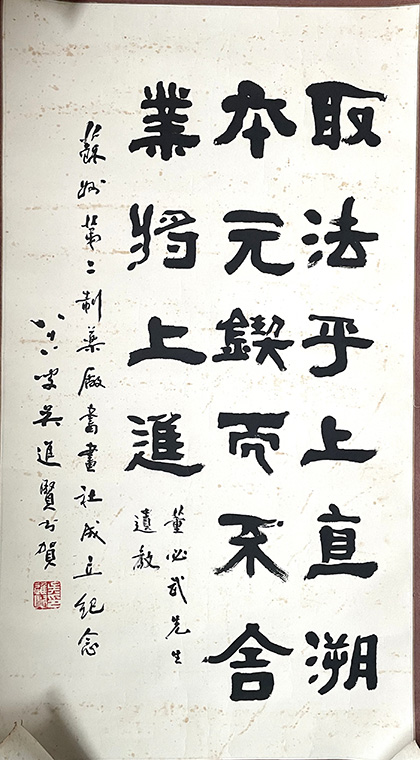 取法乎上直溯
本元鍥而不舍
業将上進
董必武先生
遺教
蘇州第二制藥廠書畫社成立紀念
八十八叟吳進賢书賀